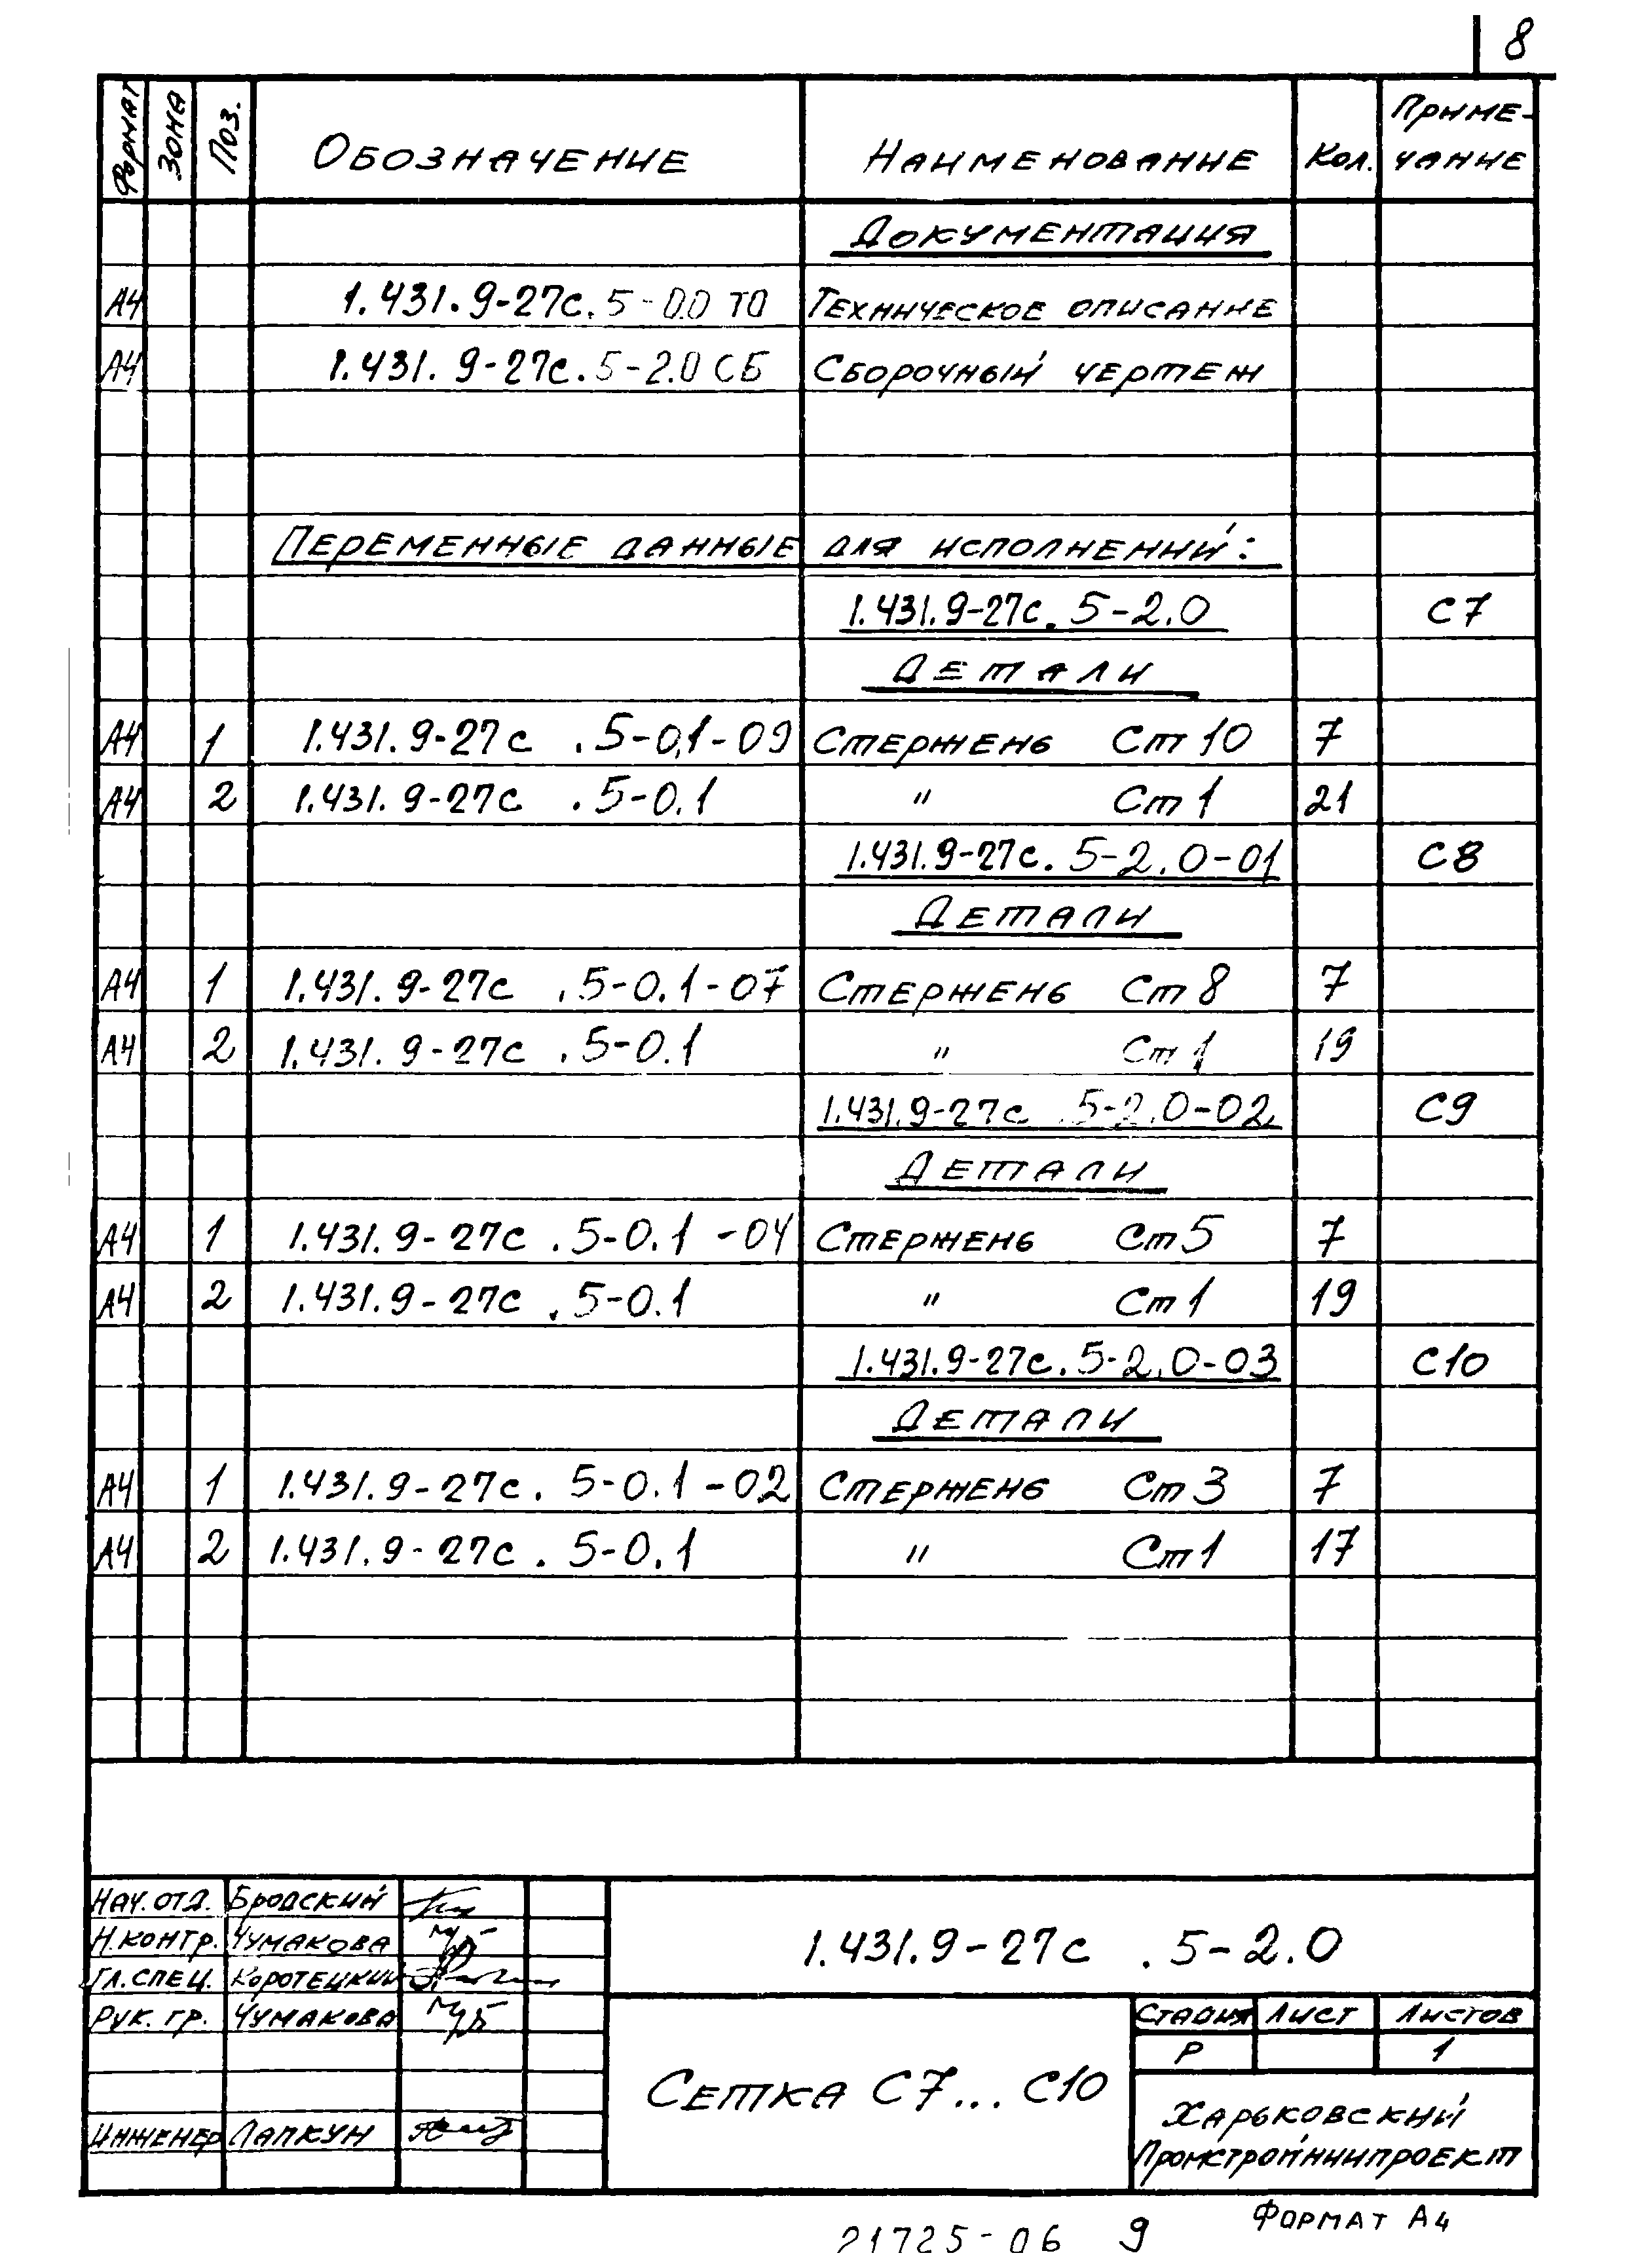 8
Формат Зона Поз. Обозначение Наименование Кол. Приме-
чание
Документация
А4 1.431.9-27с.5-0.0 ТО Техническое описание
А4 1.431.9-27с.5-2.0 СБ Сборочный чертеж
Переменные данные для исполнений:
1.431.9-27с.5-2.0 С7
Детали
А4 1 1.431.9-27с .5-0.1-09 Стержень Ст10 7
А4 2 1.431.9-27с .5-0.1 " Ст1 21
1.431.9-27с.5-2.0-01 С8
Детали
А4 1 1.431.9-27с .5-0.1-07 Стержень Ст8 7
А4 2 1.431.9-27с .5-0.1 " Ст1 19
1.431.9-27с .5-2.0-02 С9
Детали
А4 1 1.431.9-27с .5-0.1-04 Стержень Ст5 7
А4 2 1.431.9-27с .5-0.1 " Ст1 19
1.431.9-27с.5-2.0-03 С10
Детали
А4 1 1.431.9-27с. 5-0.1-02 Стержень Ст3 7
А4 2 1.431.9-27с. 5-0.1 " Ст1 17
Нач. отд. Бродский
Н.контр. Чумакова
Гл. спец. Коротецкий
Рук. гр. Чумакова
Инженер Лапкун
1.431.9-27с .5-2.0
Сетка С7...С10
Стадия Лист Листов
Р 1
Харьковский
Промстройниипроект
Формат А4
21725-06 9